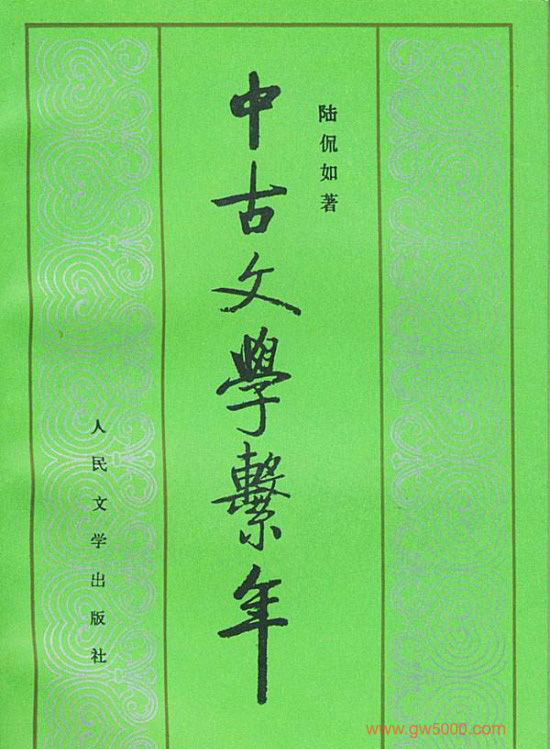 陆侃如著
中古文學繫年
人民文学出版社
www.gw5000.com